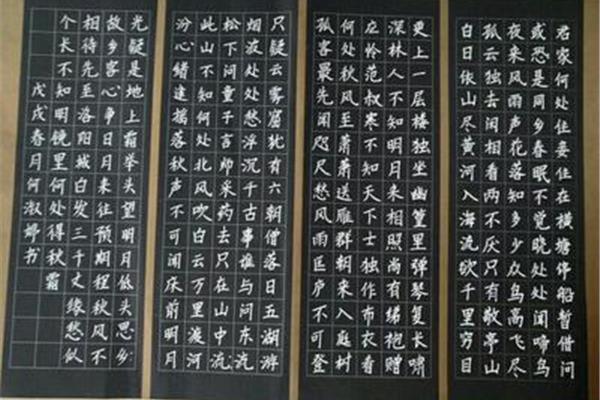 君家何处住妾住在横塘停船暂借问
或恐是同乡春眠不觉晓处处闻啼鸟
夜来风雨声花落知多少众鸟高飞尽
孤云独去闲相看两不厌只有敬亭山
白日依山尽黄河入海流欲千里穷目
更上一层楼独坐幽篁里弹琴复长啸
深林人不知明月来相照尚有绨袍赠
应怜范叔寒不知天下士独作布衣看
何处秋风至萧萧送雁群朝来入庭树
孤客最先闻咫尺愁风雨匡庐不可登
只疑云雾窟犹有六朝僧落日五湖游
烟波处处愁浮沉千古事谁与问东流
松下问童子言师采药去只在山中流
此山不知何处北风吹白云万里渡河
汾心绪逢摇落秋声不可闻床前明月
光疑是地上霜举头望明月低头思乡
故乡客心争日月来往预期程秋风不
相待先至洛阳城白发三千丈缘愁似
个长不知明镜里何处得秋霜
戊戌春月何淑婷书